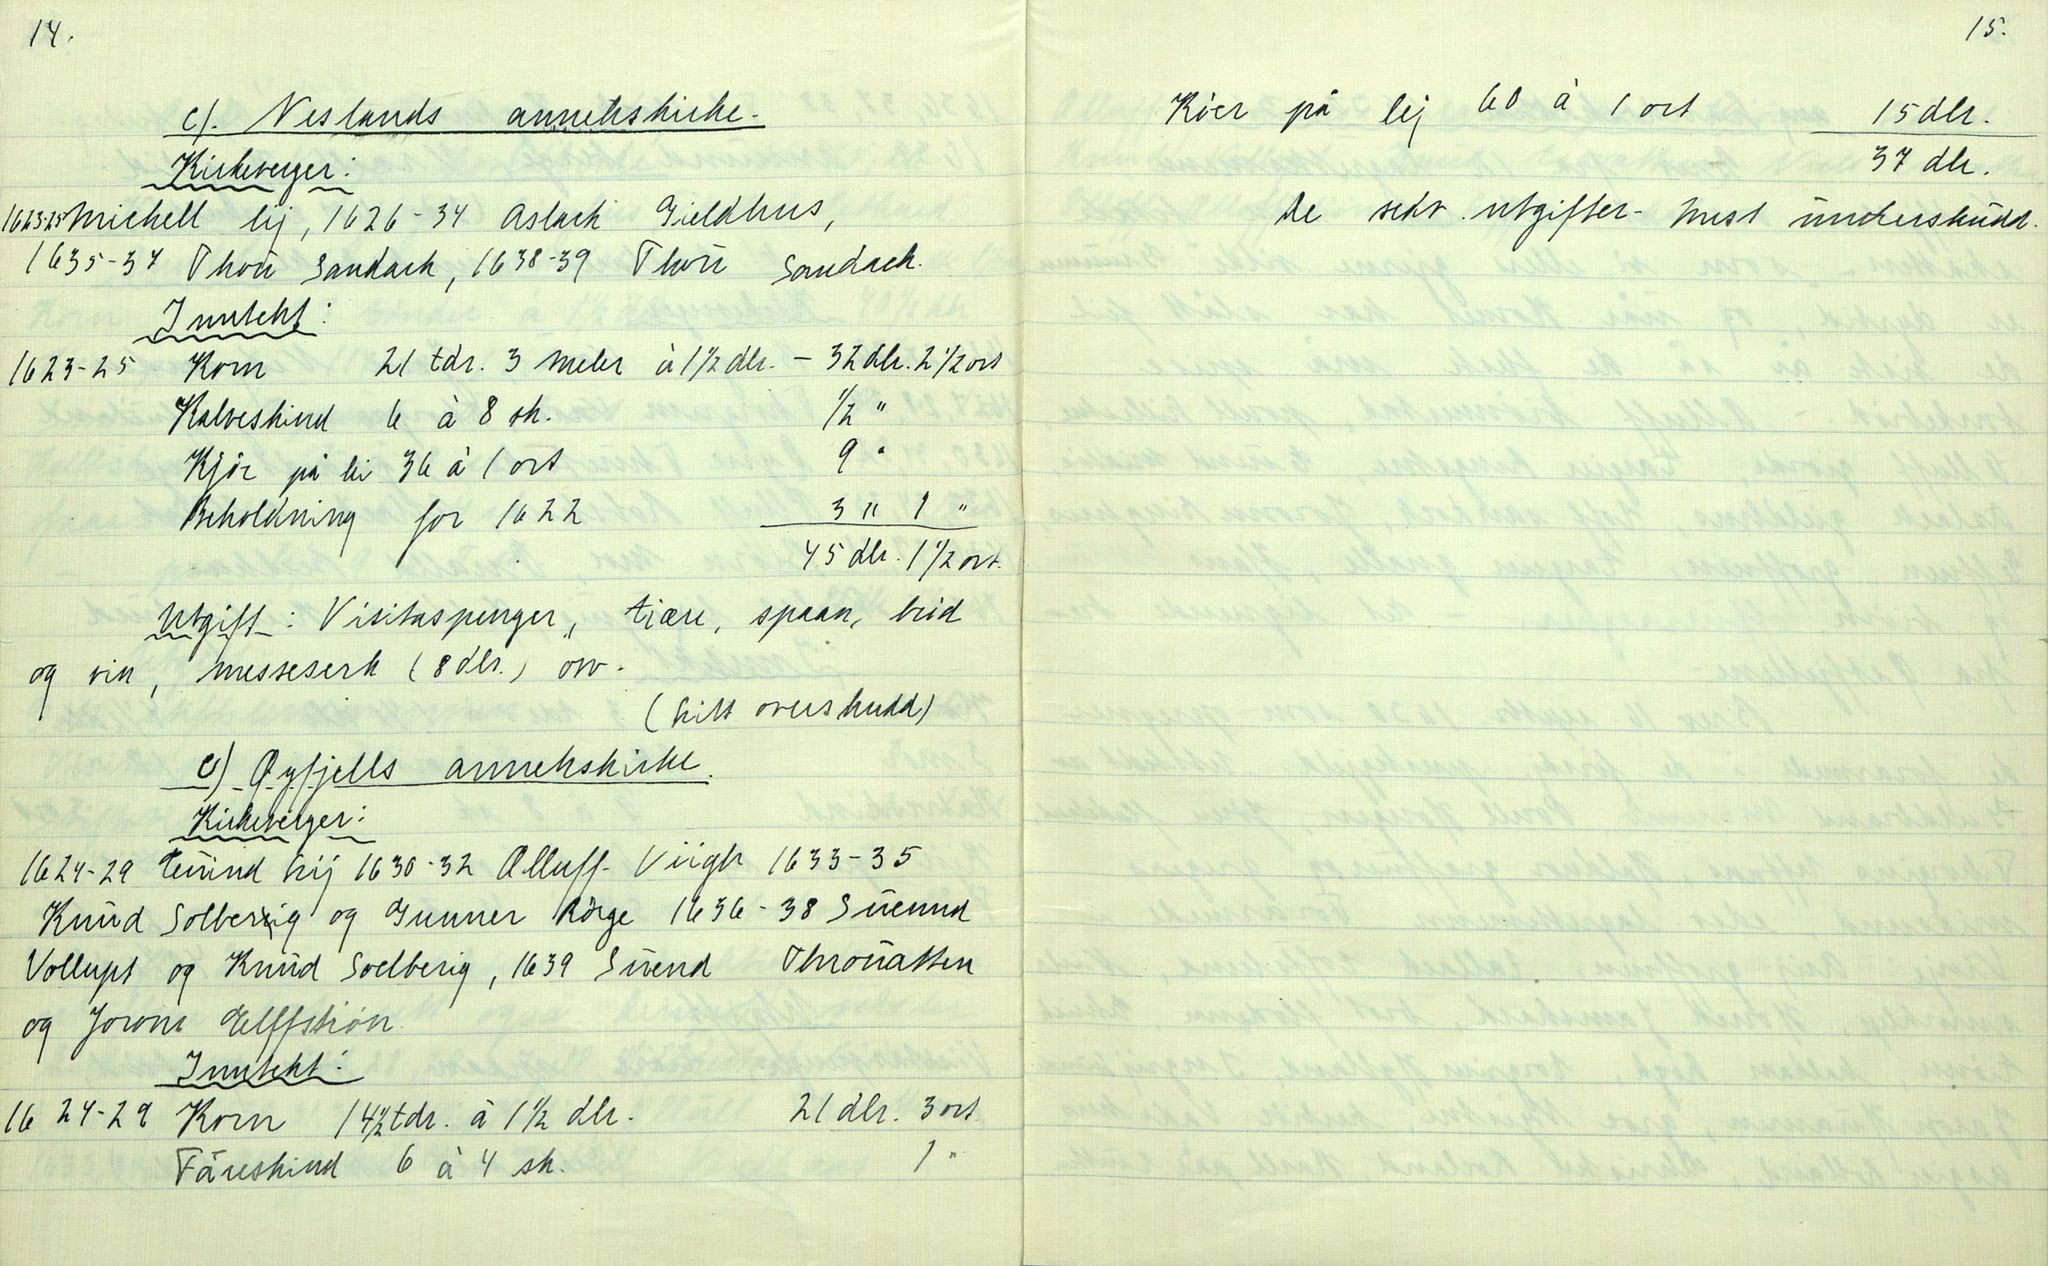 14.
c). Neslands annekskirke.
Kirkeverger:
1623-25 Michell lij, 1626-34 Aslack Gieldhus,
1635-37 Thoü Sandack, 1638-39 Thoü Sandack.
Inntekt:
1623-25 Korn 21 tdr. 3 meler à 1 1/2 dlr. - 32 dlr. 2 1/2 ort
Kalveskind 6 à 8 sk. 1/2 "
Kjör på lei 36 à 1 ort 9 "
Beholdning for 1622 3 " 1 "
45 dlr. 1 1/2 ort.
Utgift: Visitaspenger, tiære, spaan, brid
og vin, messeserk (8 dlr.) osv.
(litt overskudd)
e) Øyfjells annekskirke.
Kirkeverger:
1624-29 Eüind lij 1630-32 Olluff Viigh 1633-35
Knüd Solberig og Gunner Rörge 1636-38 Süennd
Vollupt og Knüd Soelberig, 1639 Süend Throüatsen
og Joronn Elffstrøn.
Inntekt:
1624-29 Korn 14 1/2 tdr. à 1 1/2 dlr. 21 dlr. 3 ort
Fåreskind 6 à 4 sk. 1 "
15.
Köer på lej 60 à 1 ort 15 dlr.
37 dlr.
De sedv. utgifter - mest ünderskudd.